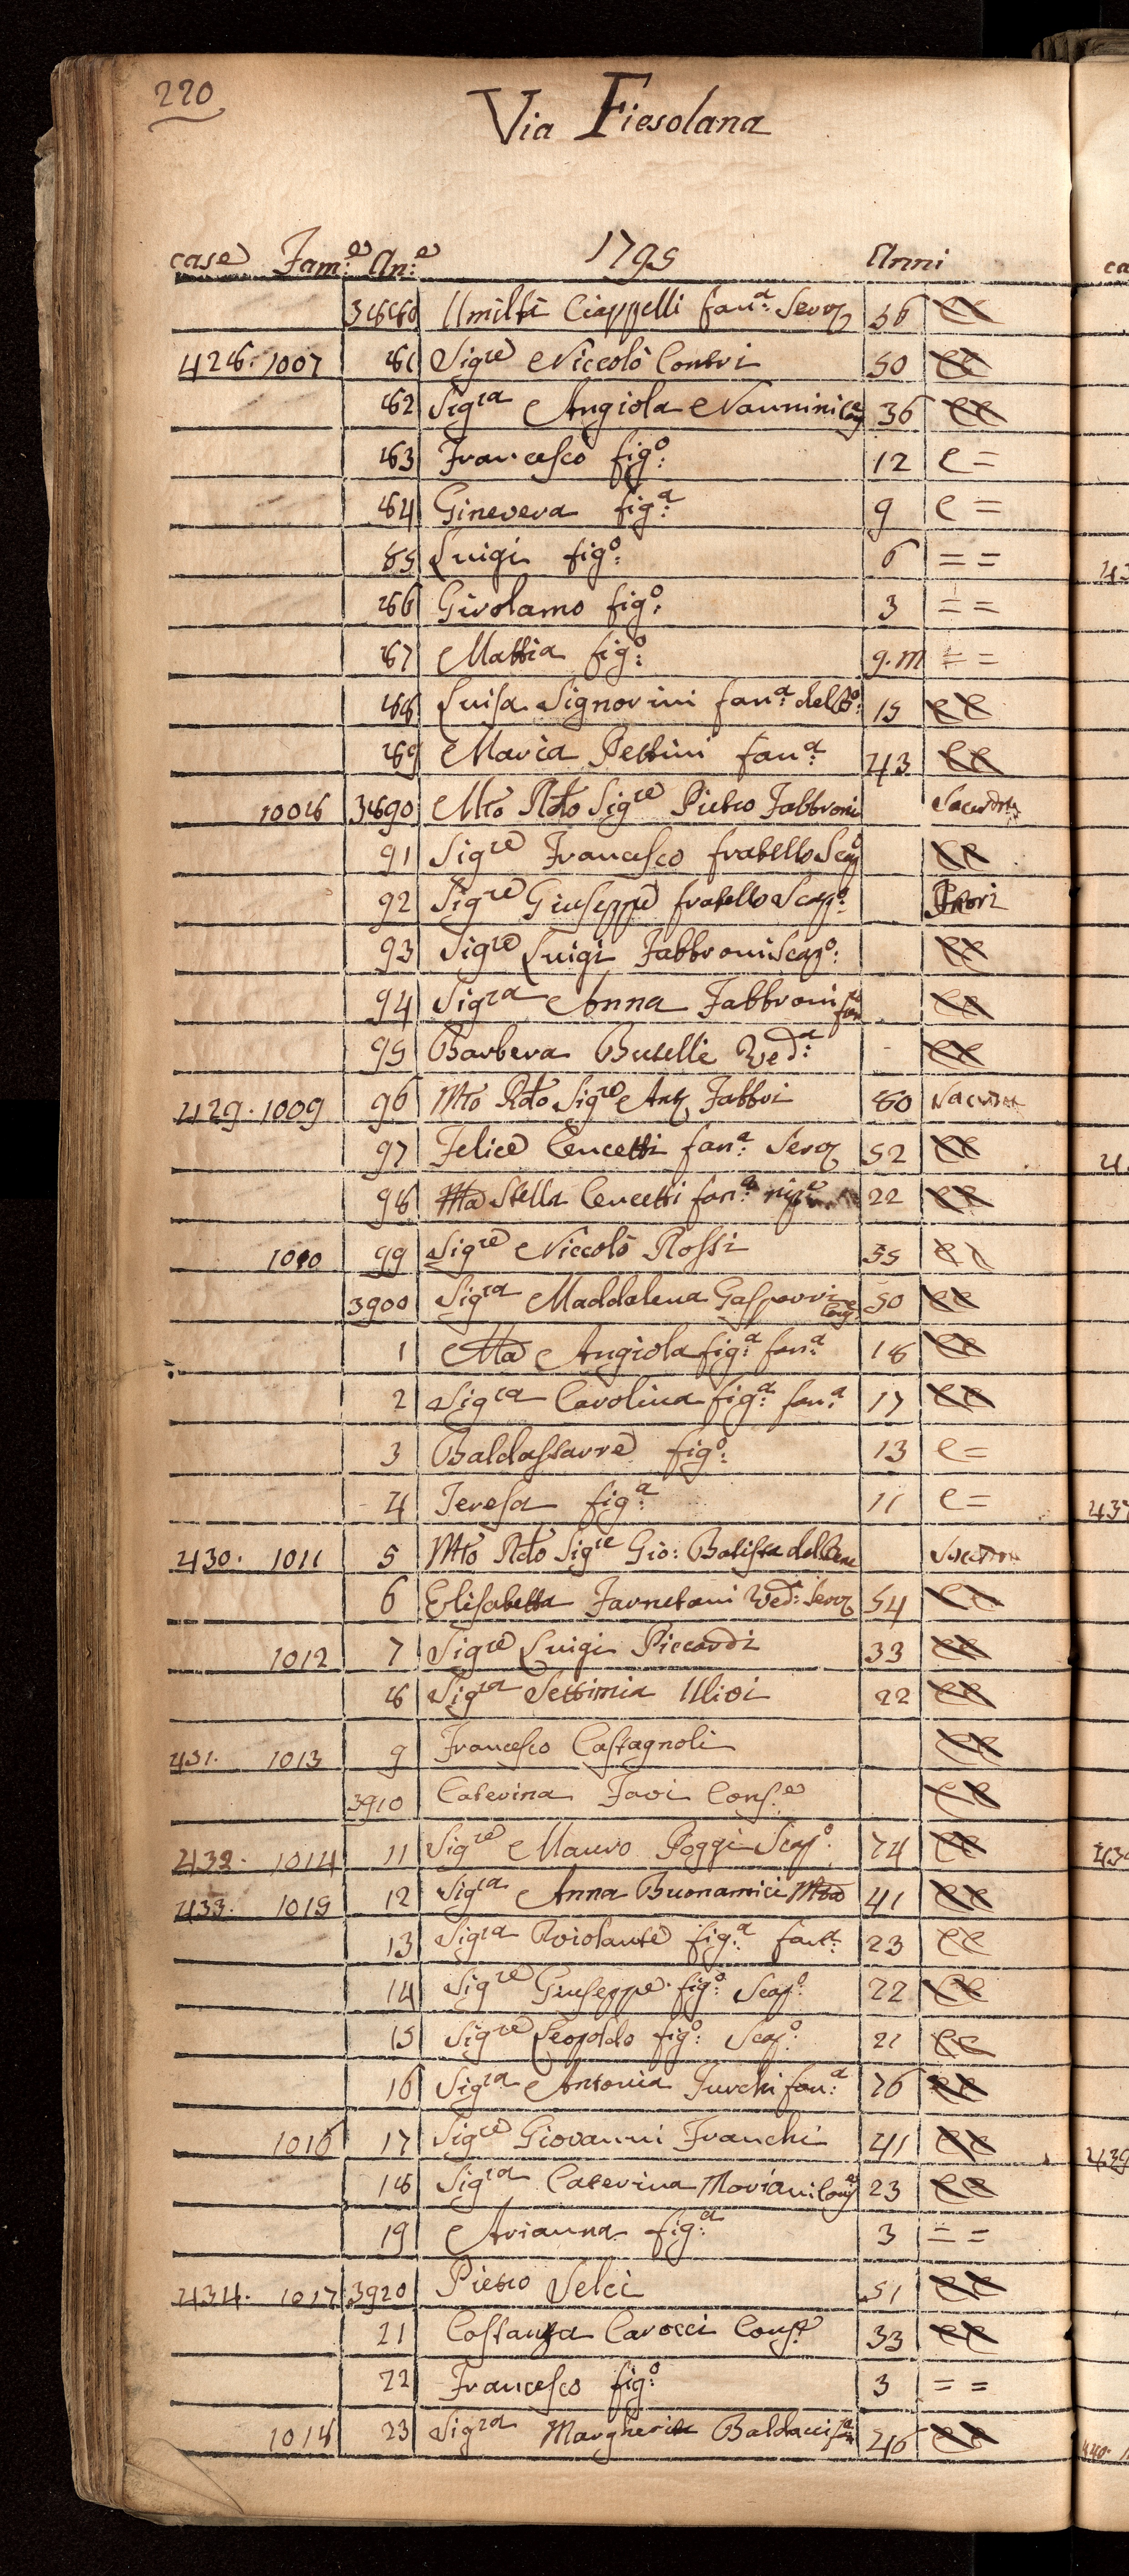 220
Via Fiesolana
case Fam:e An:e 1795 Anni
3880 Umiltà Ciappelli fan:a Serv 56 CC
428. 1007 81 Sigre Niccolò Contri 50 CC
82 Sigra Angiola Nannini 36 CC
83 Francesco fig:o 12 C =
84 Ginevera fig:a 9 C =
85 Luigi fig:o 6 = =
86 Girolamo fig:o 3 = =
87 Mattia fig:o 9.m = =
88 Luisa Signorini fan:a 15 CC
89 Maria Pettini fan:a 43 CC
1008 3890 Mto Rdo Sigre Pietro Fabbroni
91 Sigre Francesco fratello Scap:o CC
92 Sigre Giuseppe fratello Scap:o Fuori
93 Sigre Luigi Fabbroni Scap:o CC
94 Sigra Anna Fabbroni CC
95 Barbera Buselli Ved:a CC
429. 1009 96 Mto Rdo Sigre Ant. Fabbri 80
97 Felice Cencetti fan:a Serv 52 CC
98 Stella Cencetti fan:a 22 CC
1010 99 Sigre Niccolò Rossi 55 CC
3900 Sigra Maddalena Gasperri 50 CC
1 Mta Angiola fig:a fan:a 18 CC
2 Sigra Carolina fig:a fan:a 17 CC
3 Baldassarre fig:o 13 C =
4 Teresa fig:a 11 C =
430. 1011 5 Mto Rdo Sigre Gio: Batista del Bene
6 Elisabetta Farnetani Ved:a Serv 54 CC
1012 7 Sigre Luigi Piccardi 33 CC
8 Sigra Settimia Ulivi 22 CC
431. 1013 9 Francesco Castagnoli CC
3910 Caterina Favi Cons:e CC
432. 1014 11 Sigre Mauro Poggi Scap:o 74 CC
433. 1015 12 Sigra Anna Buonamici Mta 41 CC
13 Sigra Violante fig:a fan:a 23 CC
14 Sigre Giuseppe fig:o Scap:o 22 CC
15 Sigre Leopoldo fig:o Scap:o 21 CC
16 Sigra Antonia Turchi fan:a 76 CC
1016 17 Sigre Giovanni Franchi 41 CC
18 Sigra Caterina Moriani 23 CC
19 Arianna fig:a 3 = =
434. 1017 3920 Pietro Selci 51 CC
21 Costanza Carocci Cons:e 33 CC
22 Francesco fig:o 3 = =
1018 23 Sigra Margherita Baldacci 46 CC